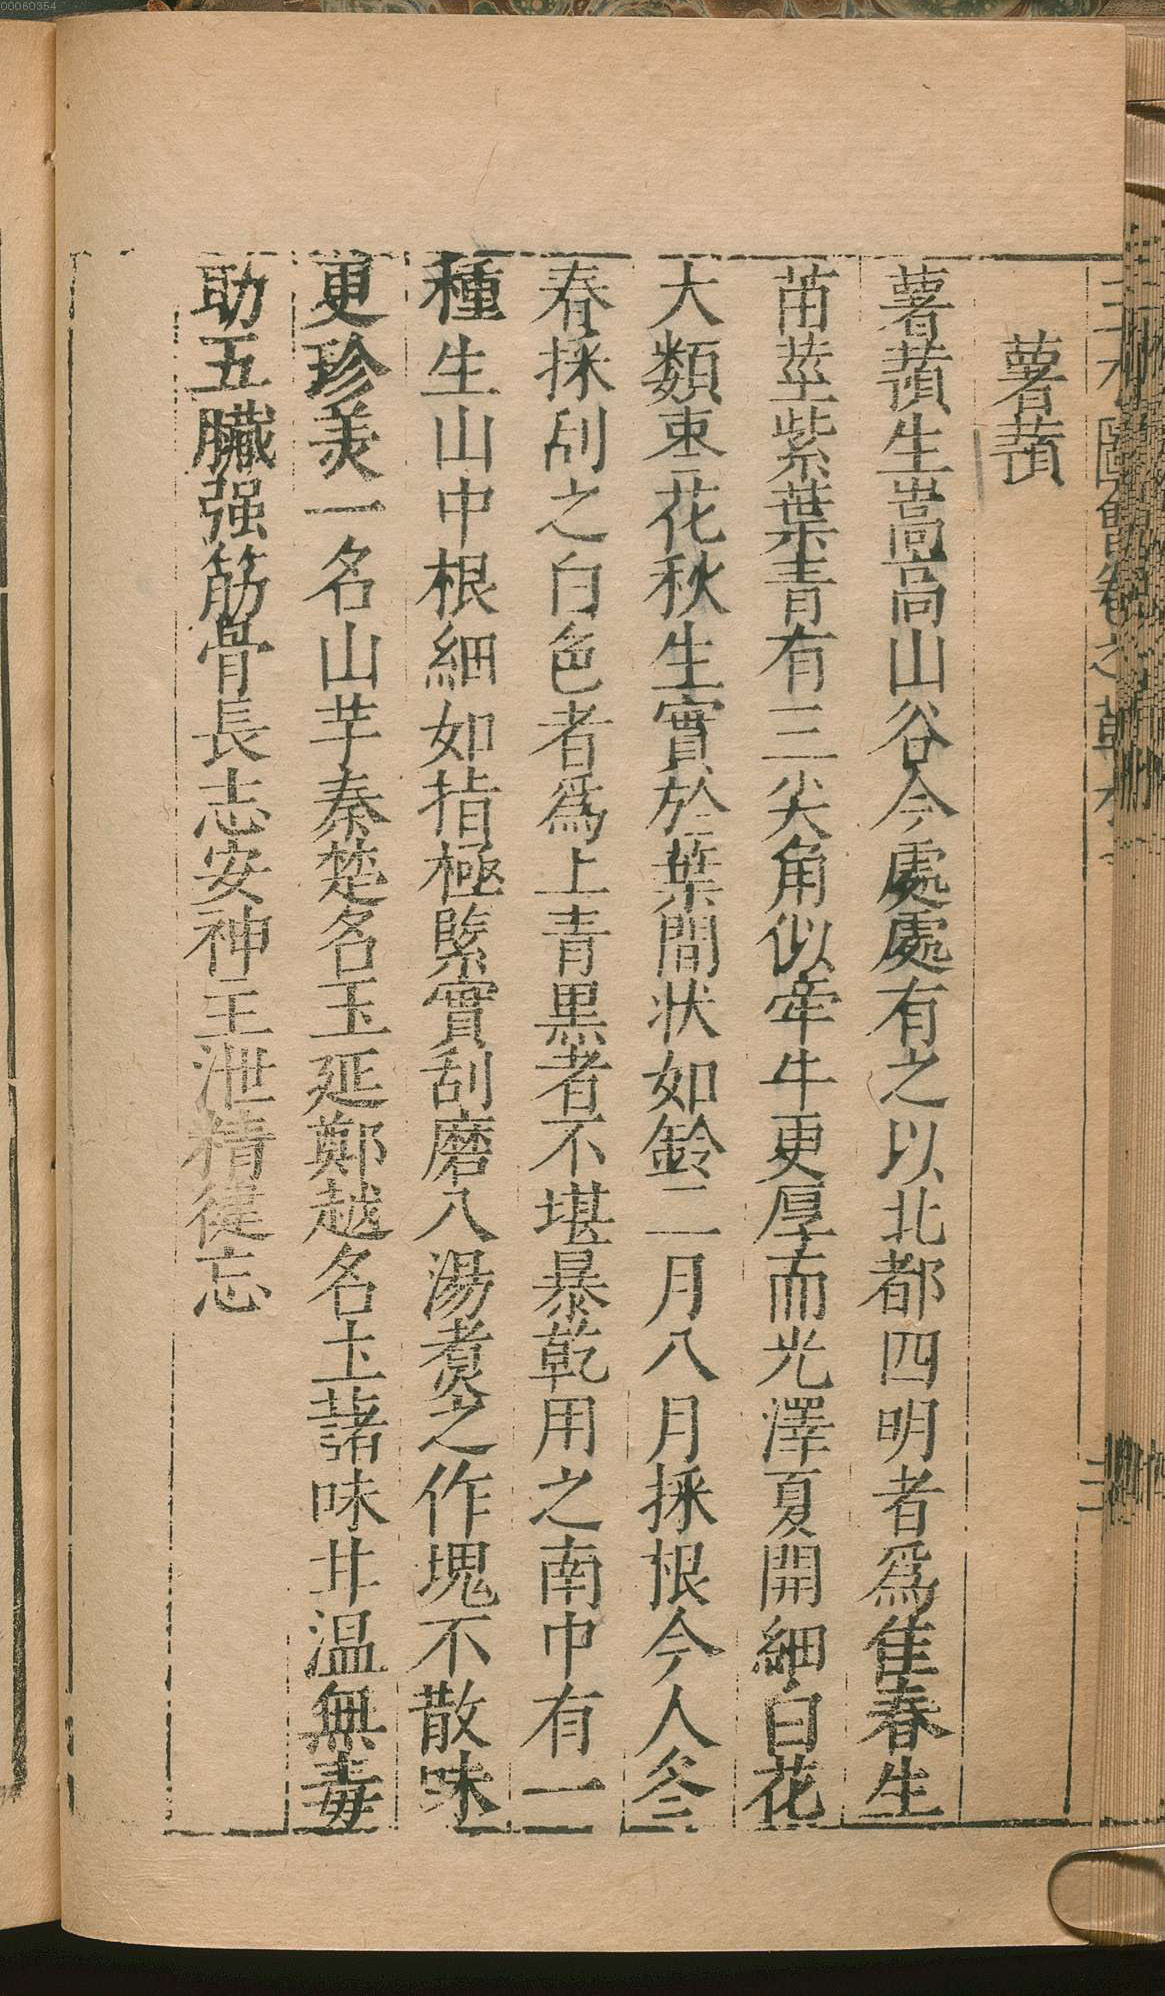 薯蕷
薯蕷生嵩高山谷今處處有之以北都四明者爲佳春生
苗莖紫葉青有三尖角似牽牛更厚而光澤夏開細白花
大類棗花秋生實於葉間状如鈴二月八月採根今人冬
春採刮之白色者爲上青黒者不堪暴乾用之南中有一
種生山中根細如指極緊實刮磨入湯煑之作塊不散味
更珍美一名山芋秦楚名玉延鄭越名土藷味甘温無毒
助五臟强筋骨長志安神主泄精健忘
00060354